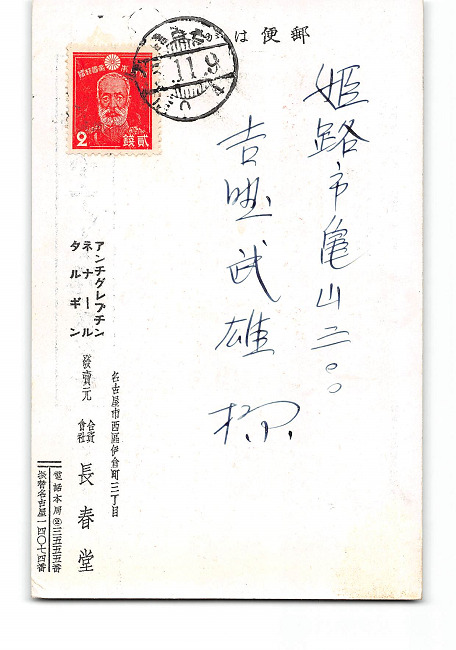 郵便は
姫路市亀山二〇〇
吉田武雄様
11.9
貳錢
2
アンチグレプチン
ネナール
タルギン
名古屋市西區伊倉町三丁目
發賣元 合資會社 長春堂
電話本局②三五五五番
振替名古屋一四〇七四番